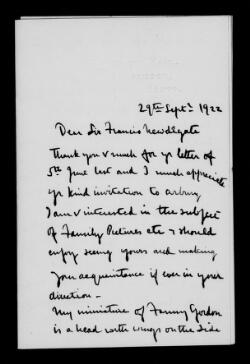 29th Septr 1922
Dear Sir Francis Newdegate
Thank you v much for yr letter of
5th June last and I much appreciate
yr kind invitation to Arbury
I am v interested in the subject
of Family Pictures etc & should
enjoy seeing yours and making
your acquaintance if ever in your
direction -
My miniature of Fanny Gordon
is a head with wings on the side